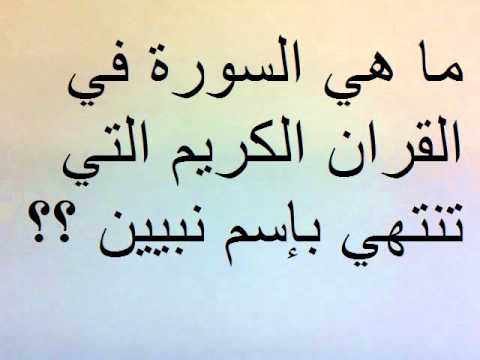 ما هي السورة في
القران الكريم التي
تنتهي بإسم نبيين ؟؟